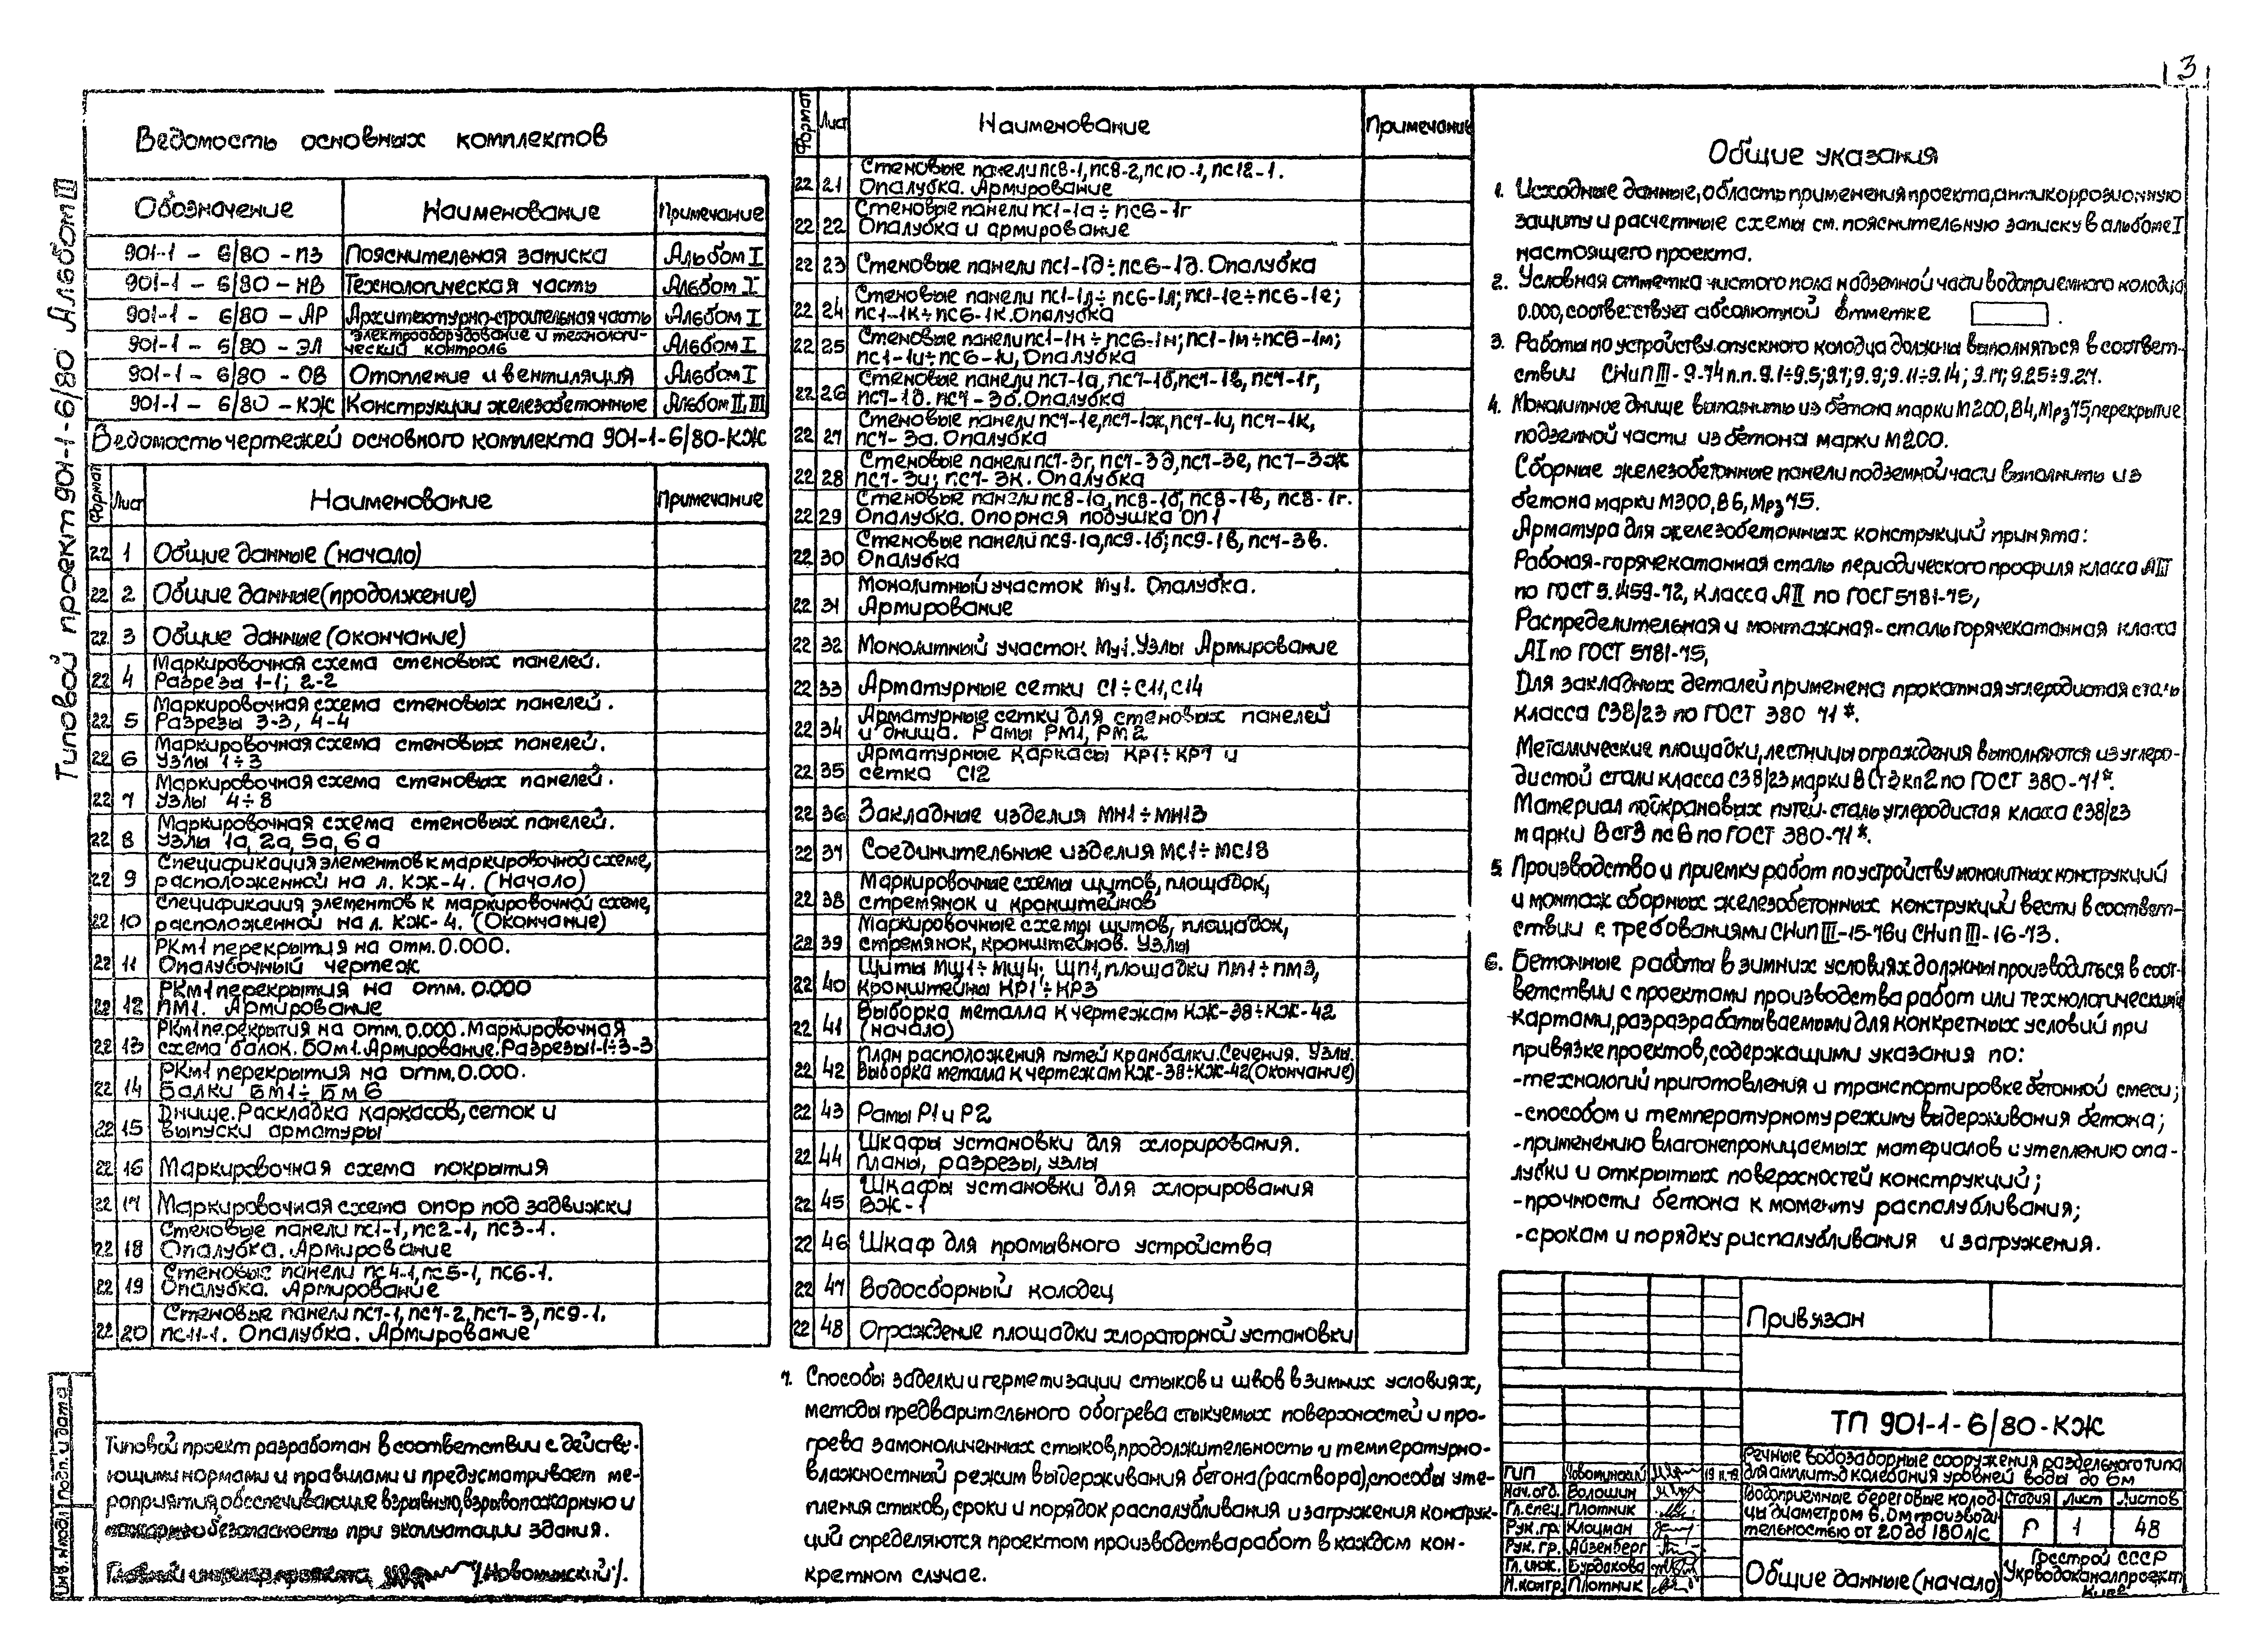 3
Типовой проект 901-1-6/80 Альбом III
Ведомость основных комплектов
Обозначение Наименование Примечание
901-1-6/80-ПЗ Пояснительная записка Альбом I
901-1-6/80-НВ Технологическая часть Альбом I
901-1-6/80-АР Архитектурно-строительная часть Альбом I
901-1-6/80-ЭЛ Электрооборудование и технологи-
ческий контроль Альбом I
901-1-6/80-ОВ Отопление и вентиляция Альбом I
901-1-6/80-КЖ Конструкции железобетонные Альбом II, III
Ведомость чертежей основного комплекта 901-1-6/80-КЖ
Формат Лист Наименование Примечание
22 1 Общие данные (начало)
22 2 Общие данные (продолжение)
22 3 Общие данные (окончание)
22 4 Маркировочная схема стеновых панелей.
Разрезы 1-1; 2-2
22 5 Маркировочная схема стеновых панелей.
Разрезы 3-3, 4-4
22 6 Маркировочная схема стеновых панелей.
Узлы 1÷3
22 7 Маркировочная схема стеновых панелей.
Узлы 4÷8
22 8 Маркировочная схема стеновых панелей.
Узлы 1а, 2а, 5а, 6а
22 9 Спецификация элементов к маркировочной схеме,
расположенной на л. КЖ-4. (Начало)
22 10 Спецификация элементов к маркировочной схеме,
расположенной на л. КЖ-4. (Окончание)
22 11 РКм1 перекрытия на отм. 0.000.
Опалубочный чертеж
22 12 РКм1 перекрытия на отм. 0.000
ПМ1. Армирование
22 13 РКм1 перекрытия на отм. 0.000. Маркировочная
схема балок. БОм1. Армирование. Разрезы 1-1÷3-3
22 14 РКм1 перекрытия на отм. 0.000.
Балки БМ1÷БМ6
22 15 Днище. Раскладка каркасов, сеток и
выпуски арматуры
22 16 Маркировочная схема покрытия
22 17 Маркировочная схема опор под задвижки
22 18 Стеновые панели пс1-1, пс2-1, пс3-1.
Опалубка. Армирование
22 19 Стеновые панели пс4-1, пс5-1, пс6-1.
Опалубка. Армирование
22 20 Стеновые панели пс7-1, пс7-2, пс7-3, пс9-1.
пс11-1. Опалубка. Армирование
Типовой проект разработан в соответствии с действу-
ющими нормами и правилами и предусматривает ме-
роприятия, обеспечивающие взрывную, взрывопожарную и
пожарную безопасность при эксплуатации здания.
Главный инженер проекта /Новоминский/.
Инв. № подл. Подп. и дата
Формат Лист Наименование Примечание
22 21 Стеновые панели пс8-1, пс8-2, пс10-1, пс12-1.
Опалубка. Армирование
22 22 Стеновые панели пс1-1а÷пс6-1г
Опалубка и армирование
22 23 Стеновые панели пс1-1д÷пс6-1д. Опалубка
22 24 Стеновые панели пс1-1л÷пс6-1л; пс1-1е÷пс6-1е;
пс1-1к÷пс6-1к. Опалубка
22 25 Стеновые панели пс1-1н÷пс6-1н; пс1-1м÷пс6-1м;
пс1-1и÷пс6-1и, Опалубка
22 26 Стеновые панели пс7-1а, пс7-1б, пс7-1в, пс7-1г,
пс7-1д. пс7-3б. Опалубка
22 27 Стеновые панели пс7-1е, пс7-1ж, пс7-1и, пс7-1к,
пс7-3а. Опалубка
22 28 Стеновые панели пс7-3г, пс7-3д, пс7-3е, пс7-3ж
пс7-3и; пс7-3к. Опалубка
22 29 Стеновые панели пс8-1а, пс8-1б, пс8-1в, пс8-1г.
Опалубка. Опорная подушка ОП1
22 30 Стеновые панели пс9-1а, пс9-1б; пс9-1в, пс7-3в.
Опалубка
22 31 Монолитный участок Му1. Опалубка.
Армирование
22 32 Монолитный участок Му1. Узлы Армирование
22 33 Арматурные сетки С1÷С11, С14
22 34 Арматурные сетки для стеновых панелей
и днища. Рамы РМ1, РМ2
22 35 Арматурные каркасы КР1÷КР7 и
сетка С12
22 36 Закладные изделия МН1÷МН13
22 37 Соединительные изделия МС1÷МС18
22 38 Маркировочные схемы щитов, площадок,
стремянок и кронштейнов
22 39 Маркировочные схемы щитов, площадок,
стремянок, кронштейнов. Узлы
22 40 Щиты МЩ1÷МЩ4; ЩП1, площадки ПМ1÷ПМ3,
Кронштейны КР1÷КР3
22 41 Выборка металла к чертежам КЖ-38÷КЖ-42
(начало)
22 42 План расположения путей кранбалки. Сечения. Узлы.
Выборка метала к чертежам КЖ-38÷КЖ-42 (Окончание)
22 43 Рамы Р1 и Р2
22 44 Шкафы установки для хлорирования.
Планы, разрезы, узлы
22 45 Шкафы установки для хлорирования
ВЖ-1
22 46 Шкаф для промывного устройства
22 47 Водосборный колодец
22 48 Ограждение площадки хлораторной установки
7. Способы заделки и герметизации стыков и швов в зимних условиях,
методы предварительного обогрева стыкуемых поверхностей и про-
грева замоноличенных стыков, продолжительность и температурно-
влажностный режим выдерживания бетона (раствора), способы уте-
пления стыков, сроки и порядок распалубливания и загружения конструк-
ций определяются проектом производства работ в каждом кон-
кретном случае.
Общие указания
1. Исходные данные, область применения проекта, антикоррозионную
защиту и расчетные схемы см. пояснительную записку в альбоме I
настоящего проекта.
2. Условная отметка чистого пола надземной части водоприемного колодца
0.000, соответствует абсолютной отметке .
3. Работы по устройству опускного колодца должны выполняться в соответ-
ствии СНиП III-9-74 п.п. 9.1÷9.5; 9.7; 9.9; 9.11÷9.14; 9.17; 9.25÷9.27.
4. Монолитное днище выполнить из бетона марки М200, В4, Мрз75, перекрытие
подземной части из бетона марки М200.
Сборные железобетонные панели подземной части выполнить из
бетона марки М300, В6, Мрз75.
Арматура для железобетонных конструкций принята:
Рабочая-горячекатанная сталь периодического профиля класса АIII
по ГОСТ 5.1459-72, класса АII по ГОСТ 5781-75,
Распределительная и монтажная-сталь горячекатанная класса
АI по ГОСТ 5781-75,
Для закладных деталей применена прокатная углеродистая сталь
класса С38/23 по ГОСТ 380 71*.
Металлические площадки, лестницы ограждения выполняются из углеро-
дистой стали класса С38/23 марки ВСт3кп2 по ГОСТ 380-71*.
Материал подкрановых путей-сталь углеродистая класса С38/23
марки ВСт3пс6 по ГОСТ 380-71*.
5. Производство и приемку работ по устройству монолитных конструкций
и монтаж сборных железобетонных конструкций вести в соответ-
ствии с требованиями СНиП III-15-76 и СНиП III-16-73.
6. Бетонные работы в зимних условиях должны производиться в соот-
ветствии с проектами производства работ или технологическими
картами, разразрабатываемыми для конкретных условий при
привязке проектов, содержащими указания по:
-технологий приготовления и транспортировке бетонной смеси;
-способом и температурному режиму выдерживания бетона;
-применению влагонепроницаемых материалов и утеплению опа-
лубки и открытых поверхностей конструкций;
-прочности бетона к моменту распалубливания;
-срокам и порядку распалубливания и загружения.
Привязан
ТП 901-1-6/80-КЖ
Речные водозаборные сооружения раздельного типа
для амплитуд колебания уровней воды до 6м
ГИП Новоминский
Нач. отд. Волошин
Гл. спец. Плотник
Рук. гр. Клоцман
Рук. гр. Айзенберг
Гл. инж. Бурдакова
Н. контр. Плотник
Водоприемные береговые колод-
цы диаметром 6.0м производи-
тельностью от 20 до 180 л/с
Стадия Лист Листов
Р 1 48
Общие данные (начало)
Госстрой СССР
Укрводоканалпроект
Киев